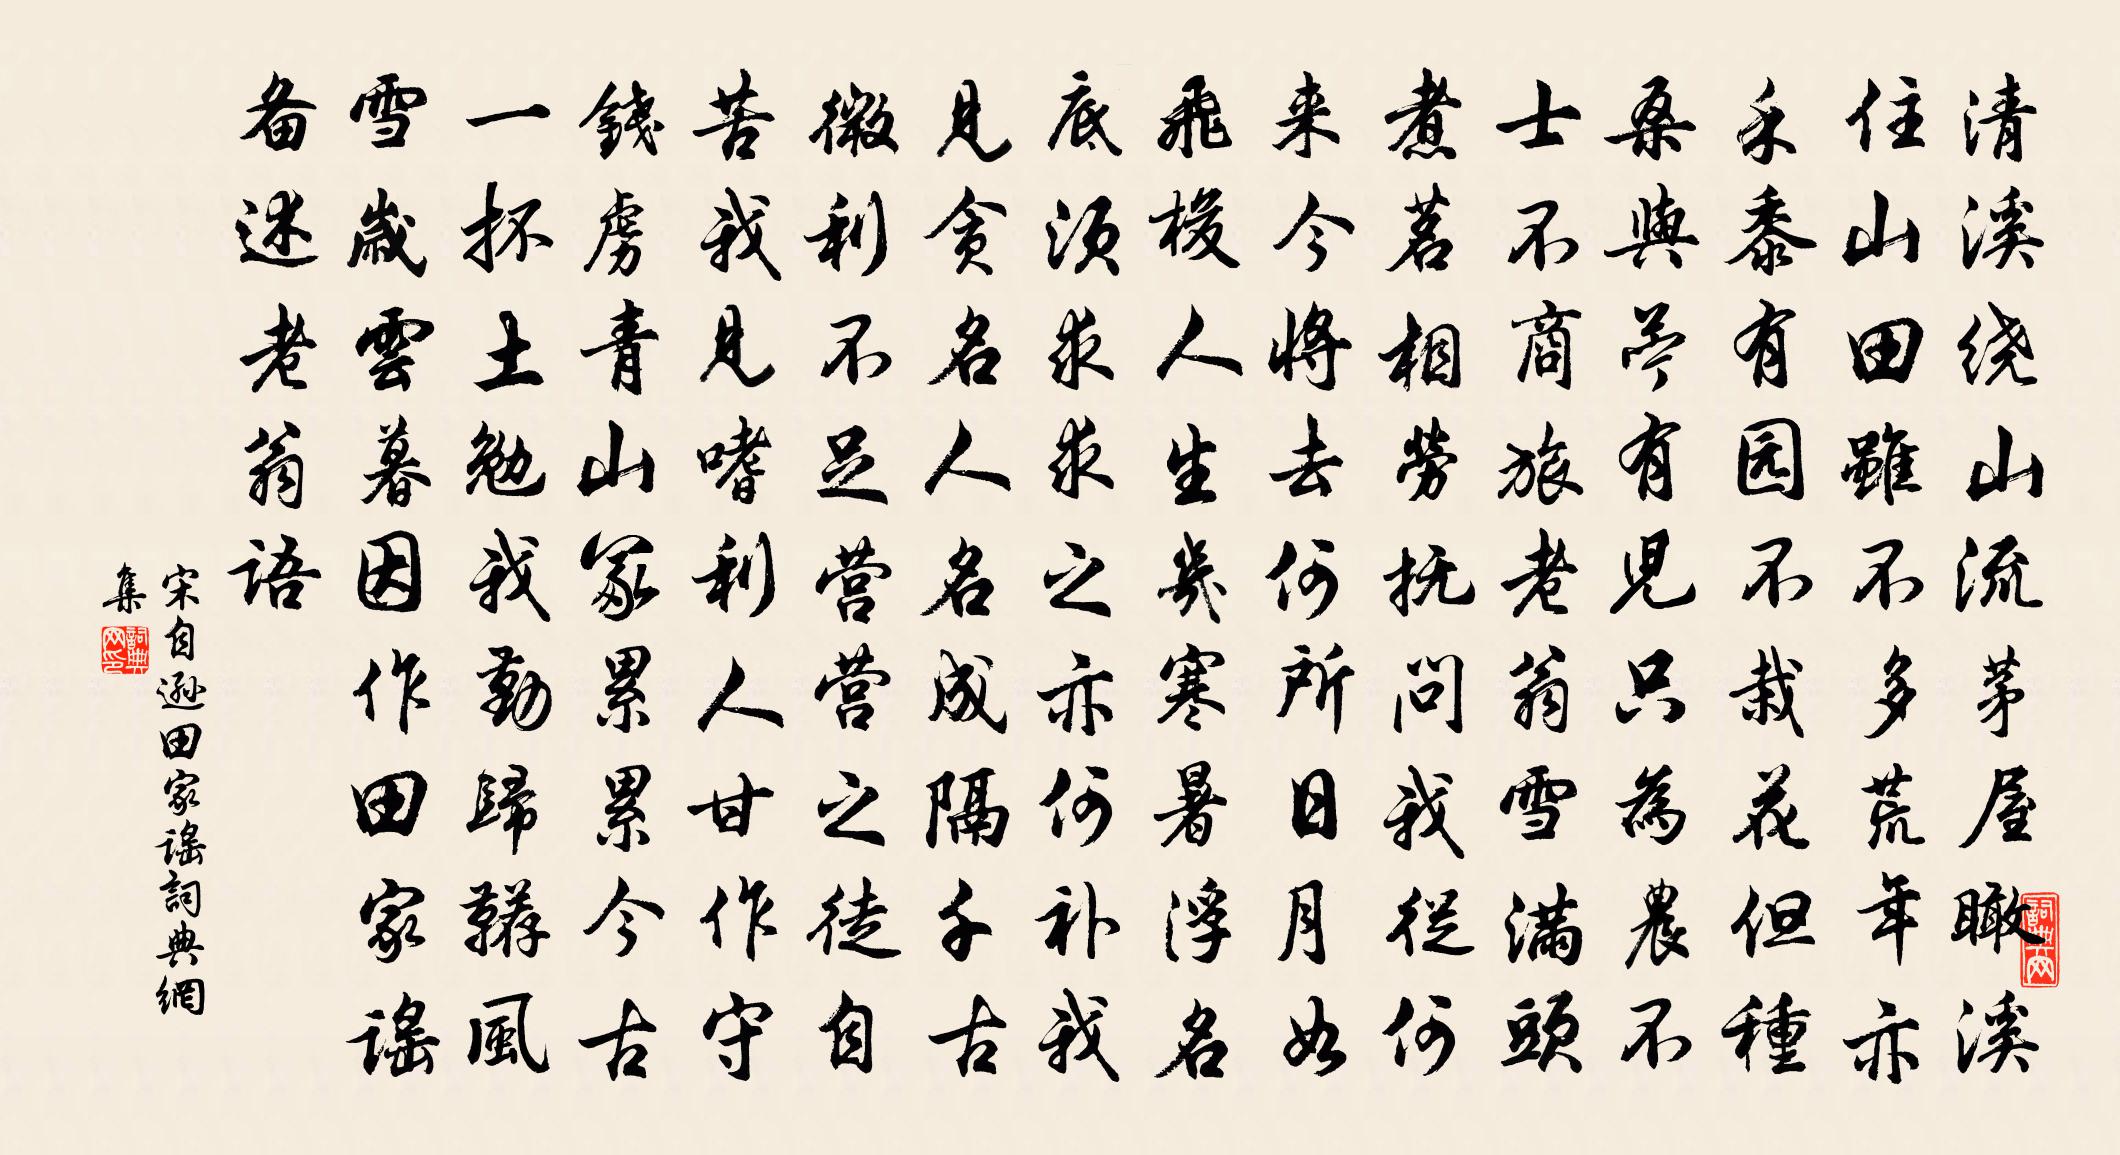 清溪绕山流茅屋瞰溪
住山田雖不多荒年亦
禾黍有园不栽花但種
桑與苎有児只為農不
士不商旅老翁雪满頭
煮茗相勞抚問我従何
来今将去何所日月如
飛梭人生幾寒暑浮名
底须求求之亦何补我
見贪名人名成隔千古
微利不足营营之徒自
苦我見嗜利人甘作守
錢虏青山冢累累今古
一抔土勉我勤歸耕風
雪歳雲暮因作田家謠
备述老翁语
宋自逊田家谣詞典網
集
詞典网
詞典网印